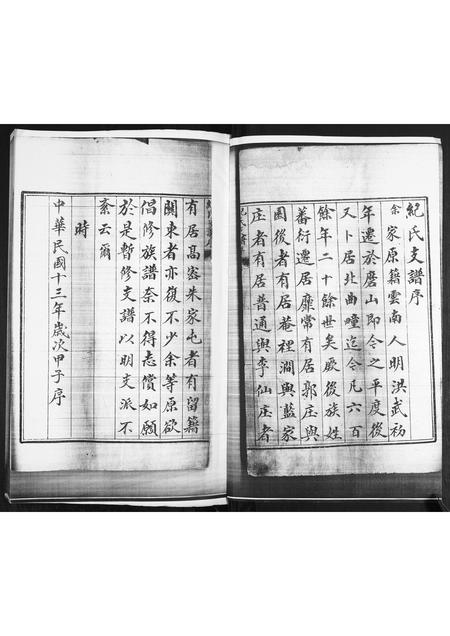 紀氏支譜序
余家原籍雲南人明洪武初
年遷於磨山即今之平度後
又卜居北曲疃迄今凡六百
餘年二十餘世矣厥後族姓
蕃衍遷居靡常有居郭庄與
園後者有居菴裡澗與藍家
庄者有居普通與李仙庄者
有居高密朱家屯者有留籍
關東者亦復不少余等原欲
倡修族譜奈不得志償如願
於是暫修支譜以明支派不
紊云爾
時
中華民國十三年歲次甲子序